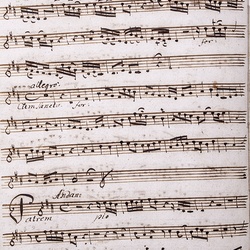 for.
allegro.
Cum sancto. for.
Andani
Patrem pio